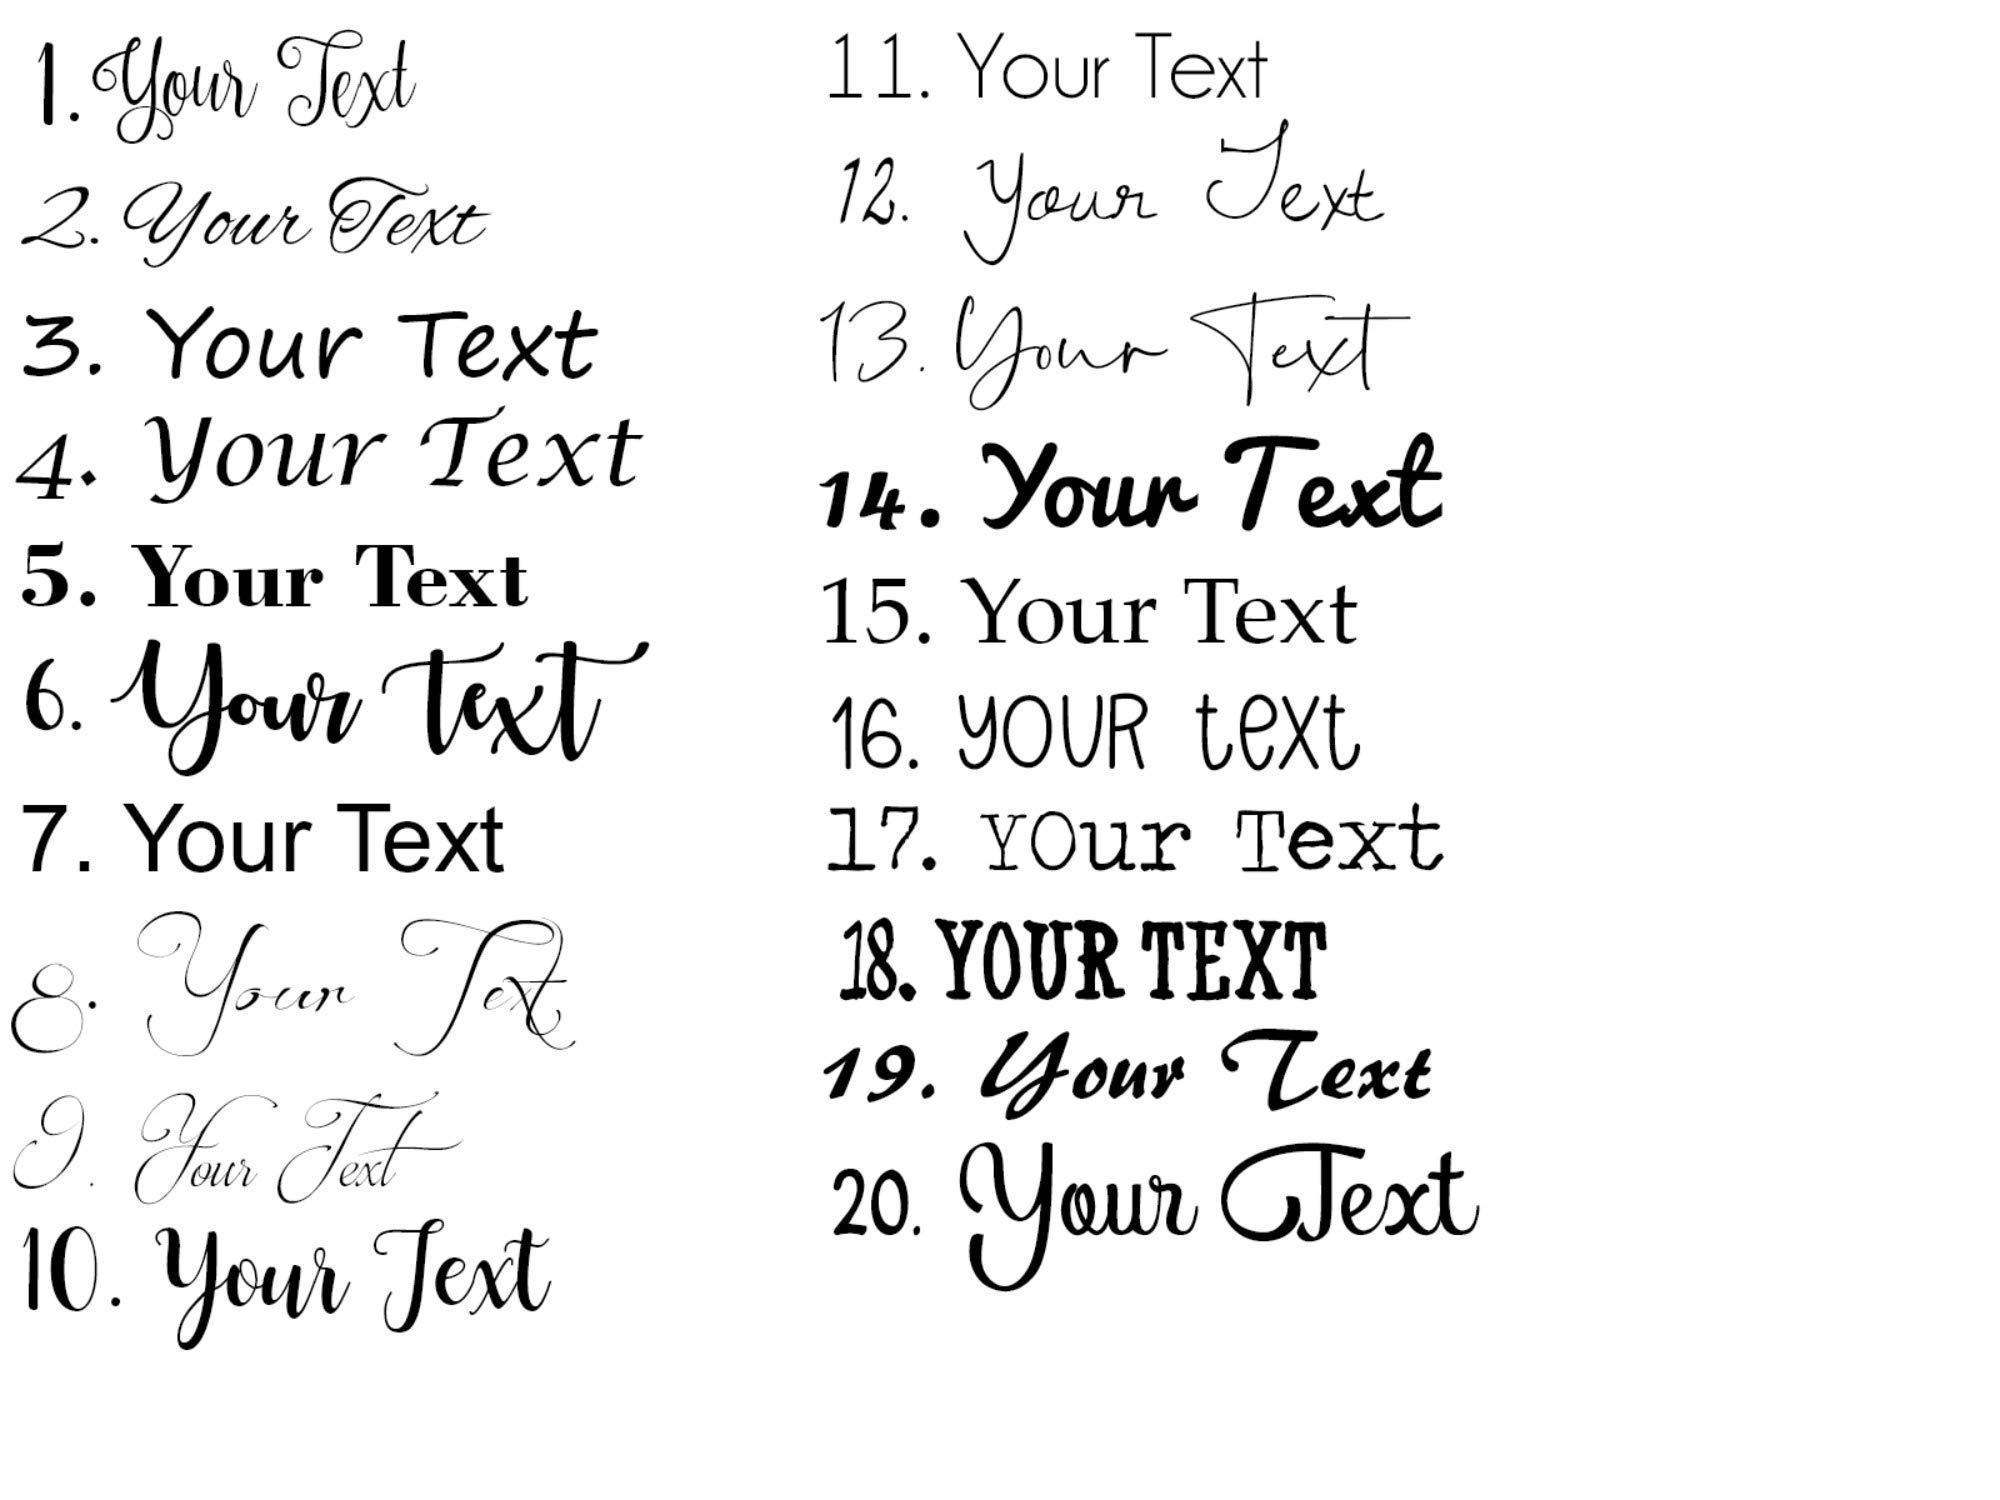 1. Your Text
2. Your Text
3. Your Text
4. Your Text
5. Your Text
6. Your text
7. Your Text
8. Your Text
9. Your Text
10. Your Text
11. Your Text
12. Your Text
13. Your Text
14. Your Text
15. Your Text
16. YOUR text
17. YOur Text
18. YOUR TEXT
19. Your Text
20. Your Text